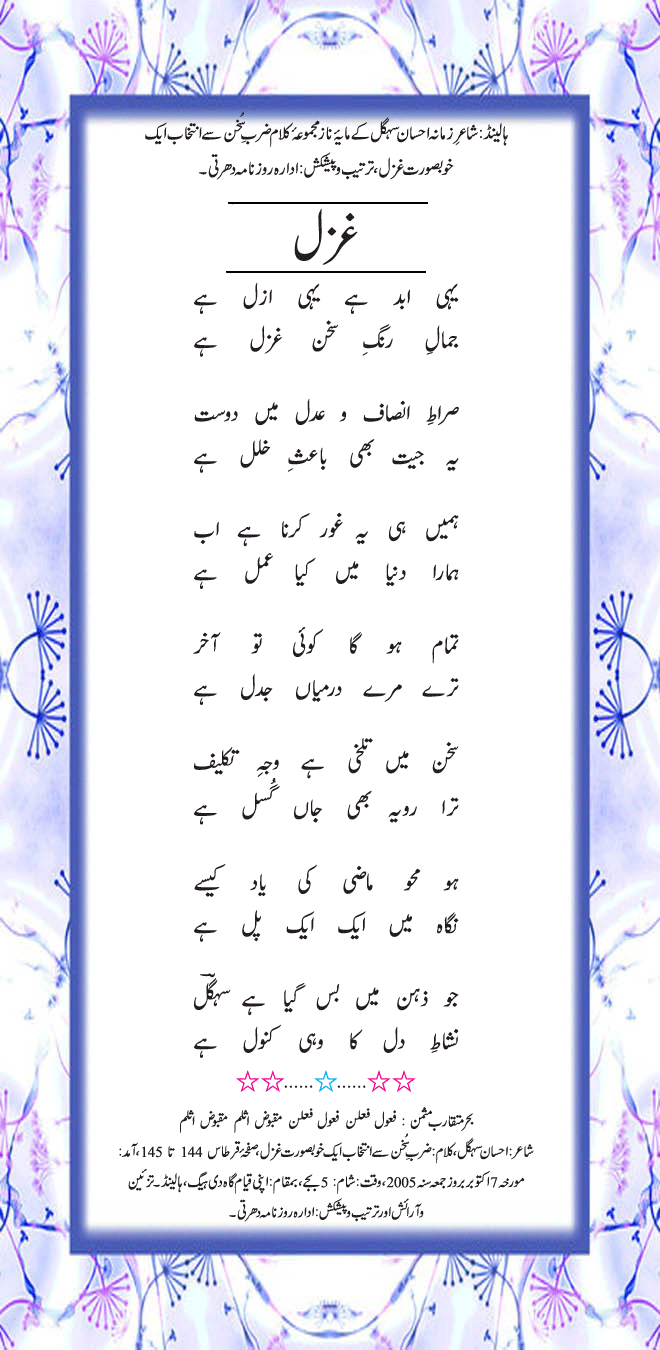 ہالینڈ: شاعرِ زمانہ احسان سہگل کے مایۂ ناز مجموعۂ کلام ضربِ سُخن سے انتخاب ایک
خوبصورت غزل، ترتیب و پیشکش: ادارہ روزنامہ دھرتی۔
غزل
یہی ابد ہے یہی ازل ہے
جمالِ رنگِ سخن غزل ہے
صراطِ انصاف و عدل میں دوست
یہ جیت بھی باعثِ خلل ہے
ہمیں ہی یہ غور کرنا ہے اب
ہمارا دنیا میں کیا عمل ہے
تمام ہو گا کوئی تو آخر
ترے مرے درمیاں جدل ہے
سخن میں تلخی ہے وجہِ تکلیف
ترا رویہ بھی جاں گُسل ہے
ہو محو ماضی کی یاد کیسے
نگاہ میں ایک ایک پل ہے
جو ذہن میں بس گیا ہے سہگلؔ
نشاطِ دل کا وہی کنول ہے
بحر متقارب مثمن : فعول فعلن فعول فعلن مقبوض اثلم مقبوض اثلم
شاعر: احسان سہگل، کلام: ضربِ سُخن سے انتخاب ایک خوبصورت غزل، صفحۂ قرطاس 144 تا 145، آمد:
مورخہ 7 اکتوبر بروز جمعہ سنہ 2005، وقت: شام: 5 بجے، بمقام: اپنی قیام گاہ دی ہیگ، ہالینڈ۔ تزئین
و آرائش اور ترتیب و پیشکش: ادارہ روزنامہ دھرتی۔